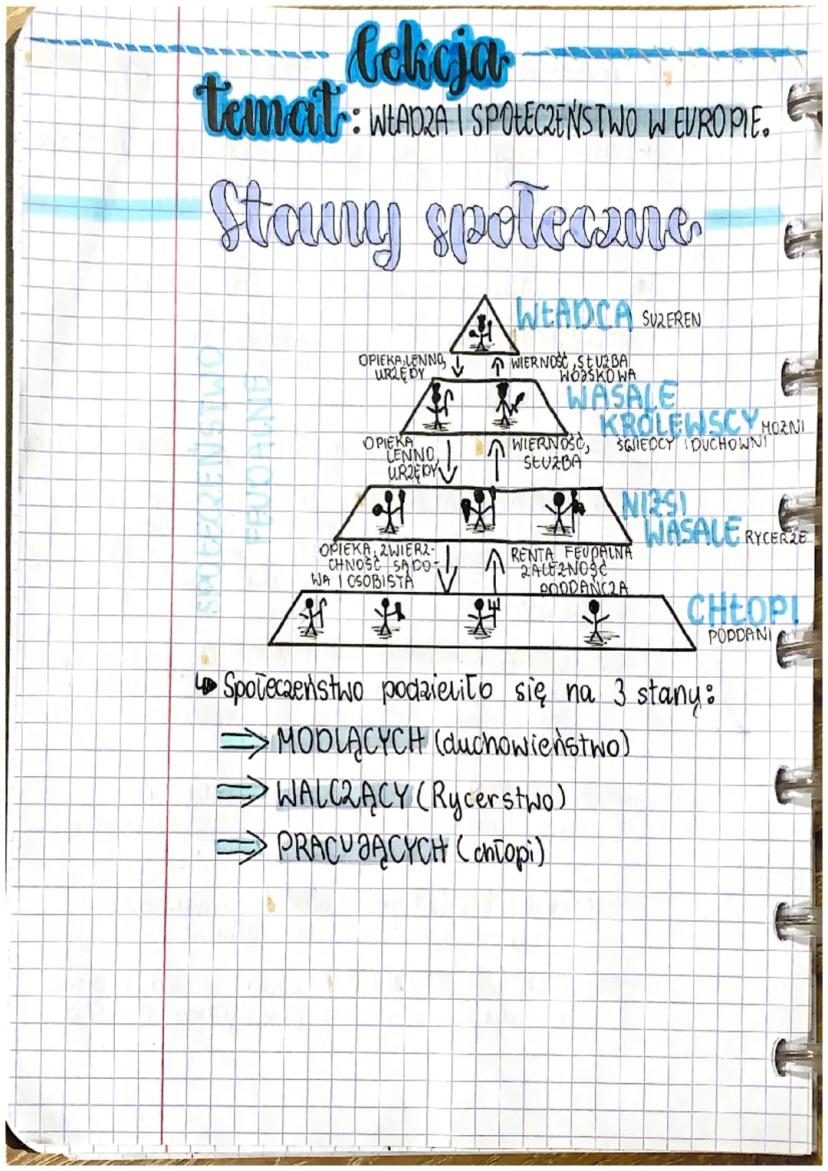 lekcja
temat: WŁADZA I SPOŁECZEŃSTWO W EUROPIE.
Stany społeczne
WŁADCA SUZEREN
OPIEKA, LENNO, URZĘDY
WIERNOŚĆ, SŁUŻBA WOJSKOWA
WASALE KRÓLEWSCY MOŻNI ŚWIECCY I DUCHOWNI
OPIEKA LENNO, URZĘDY
WIERNOŚĆ, SŁUŻBA
NIŻSI WASALE RYCERZE
OPIEKA, ZWIERZ-
CHNOŚĆ SĄDO-
WA I OSOBISTA
RENTA FEUDALNA
ZALEŻNOŚĆ
PODDAŃCZA
CHŁOPI
PODDANI
SPOŁECZEŃSTWO
FEUDALNE
↳ Społeczeństwo podzieliło się na 3 stany:
⇒ MODLĄCYCH (duchowieństwo)
⇒ WALCZĄCY (Rycerstwo)
⇒ PRACUJĄCYCH (chłopi)